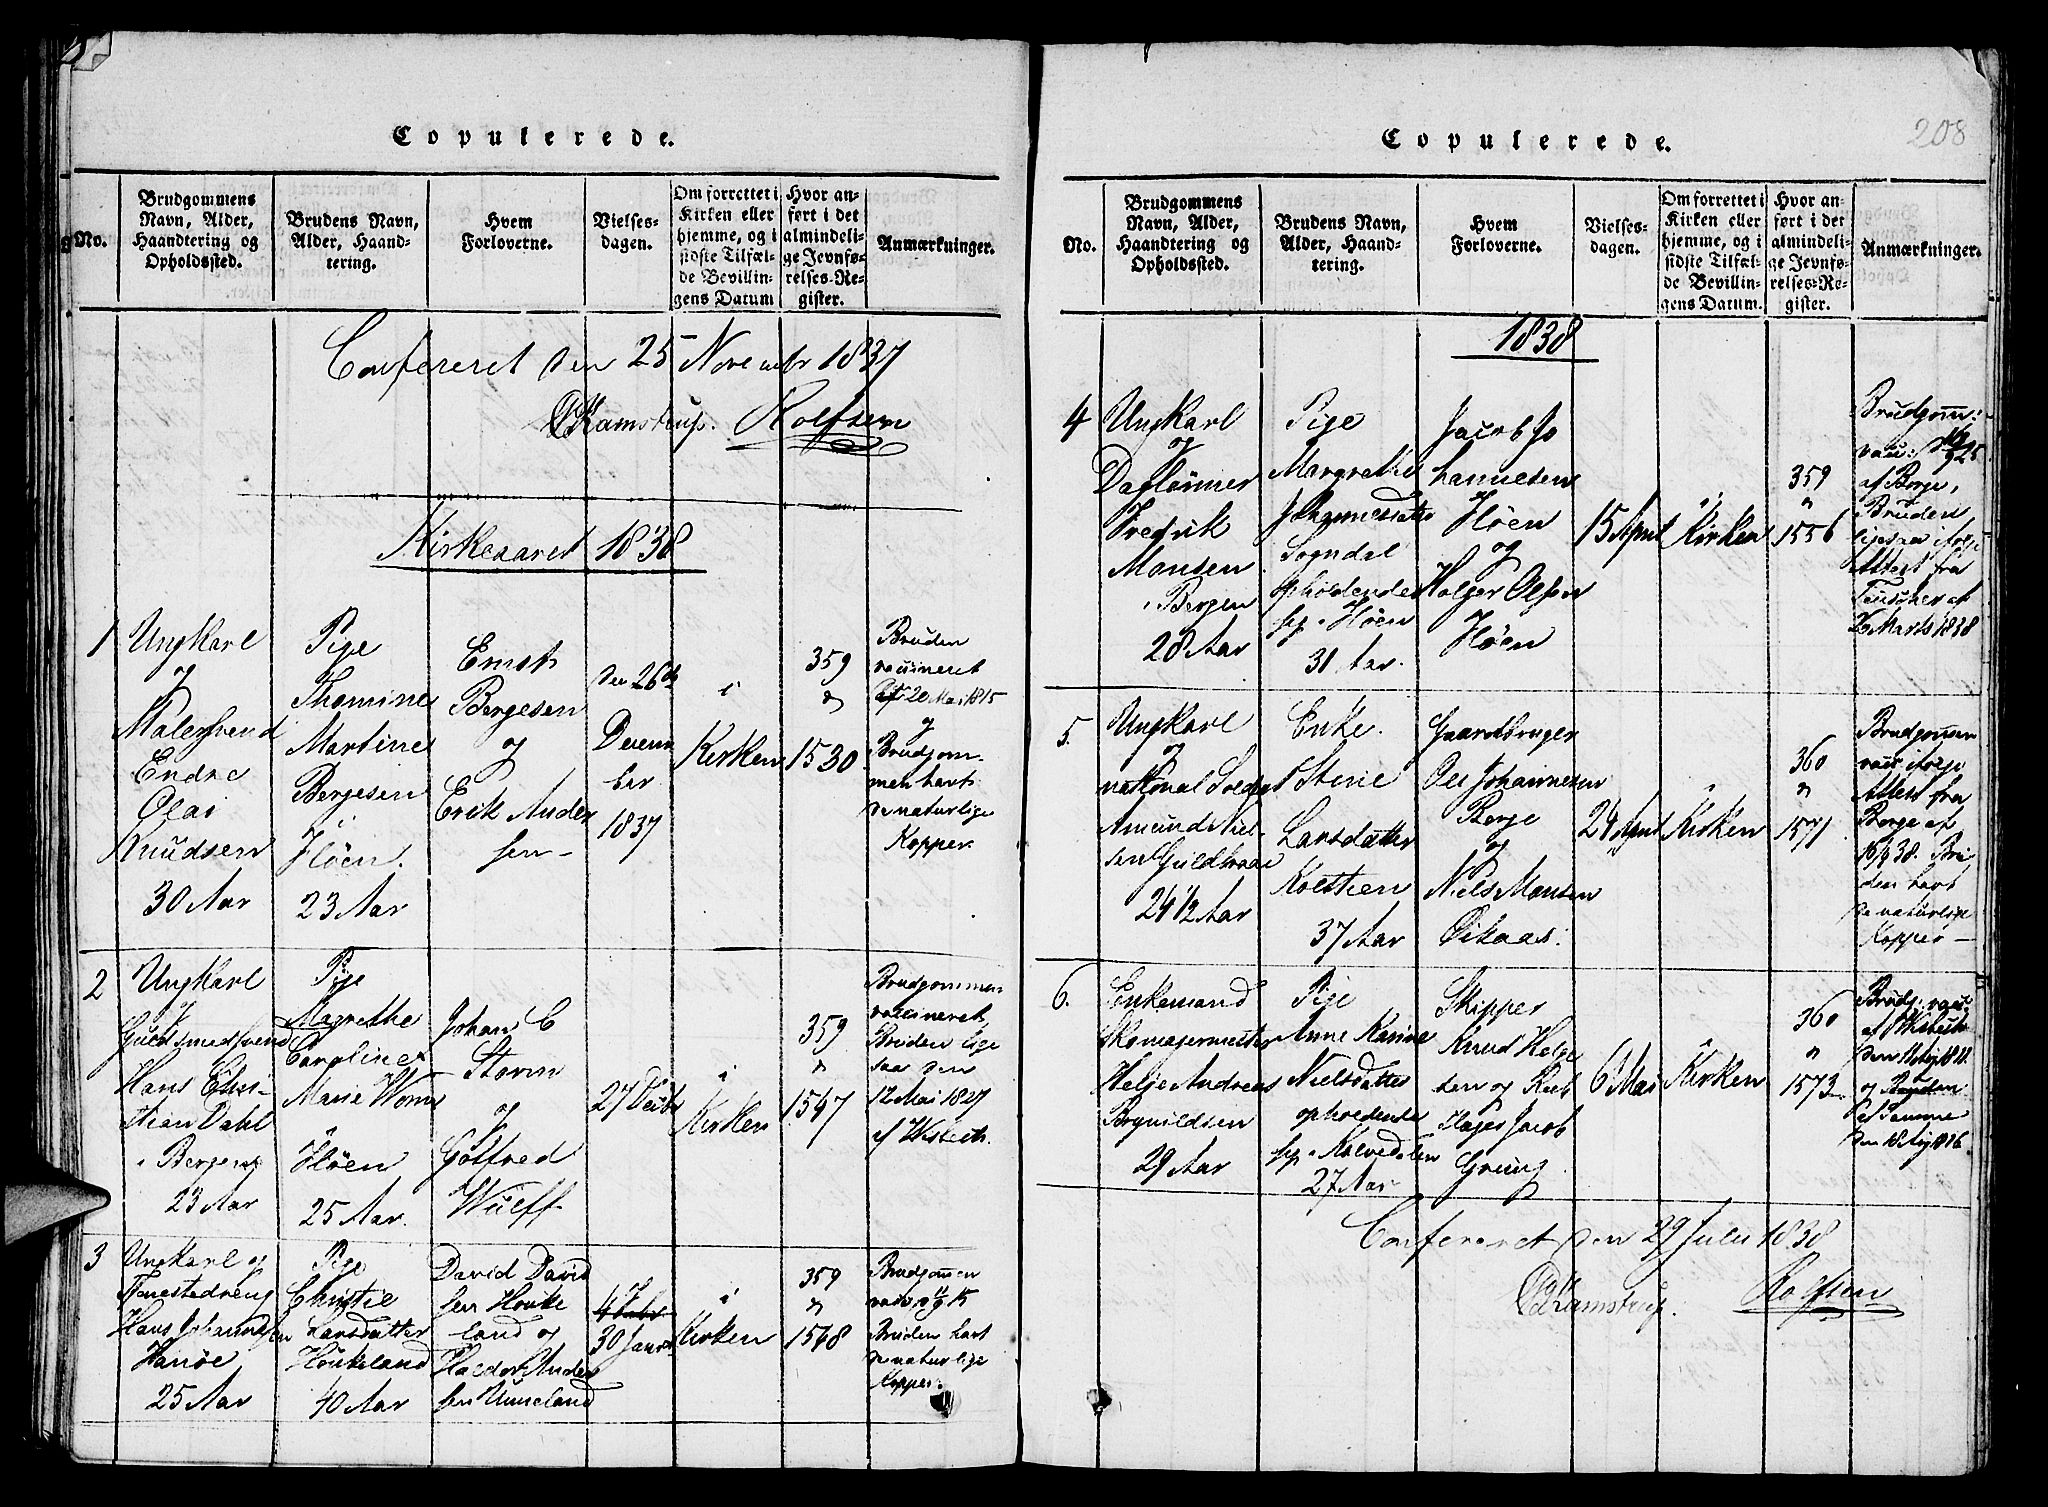 Copulerede.
No.
Brudgommens
Navn, Alder,
Haandtering og
Opholdssted.
Brudens Navn,
Alder, Haand-
tering.
Hvem
Forloverne.
Vielses-
dagen.
Om forrettet i
Kirken eller
hjemme, og i
sidste Tilfæl-
de Bevillin-
gens Datum
Hvor an-
ført i det
almindeli-
ge Jevnfø-
relses-Re-
gister.
Anmærkninger.
Confereret den 25 November 1837
Kamstrup. Rolfsen
Kirkeaaret 1838
1
Ungkarl
og
Malersvend
Endre
Olai
Knudsen
30 Aar
Pige
Thomine
Martine
Bergesen
Höen.
23 Aar
Ernst
Bergesen
og
Erik Ander
sen
Den 26de
Decem
ber
1837
i
Kirken
359
1530
Bruden
vaccineret
20 Mai 1815
og
Brudgom-
men havt
de naturlige
Kopper
2
Ungkarl
og
Guldsmedsvend
Hans Chri-
stian Dahl
i Bergen
23 Aar
Pige
Magrethe
Caroline
Marie
Höen
25 Aar.
Johan C
Storm
og
Gotfred
Wulff
27
i
Kirken
359
1547
Brudgommen
vaccineret,
Bruden lige
saa den
12 Mai 1827
af
3
Ungkarl og
Tienestedreng
Hans Johannesen
Hanöe
25 Aar
Pige
Christie
Larsdatter
Houkeland
40 Aar
David David
sen Houke
land og
Haldor Ander
sen Unneland
30 Janr
i
Kirken
359
1548
Brudgommen
Bruden havt
de naturlige
Kopper.
Copulerede.
208
No.
Brudgommens
Navn, Alder,
Haandtering og
Opholdssted.
Brudens Navn,
Alder, Haand-
tering.
Hvem
Forloverne.
Vielses-
dagen.
Om forrettet i
Kirken eller
hjemme, og i
sidste Tilfæl-
de Bevillin-
gens Datum.
Hvor an-
ført i det
almindeli-
ge Jevnfø-
relses-Re-
gister.
Anmærkninger.
1838
4
Ungkarl
og
Daglønner
Fredrik
Monsen
i Bergen
28 Aar
Pige
Margrethe
Johannesdatter
Sogndal
opholdende
sig i Höen
31 Aar.
Jacob Jo
hannesen
Höen
og
Holger Olsen
Höen
15 April
i
Kirken
359
1556
Brudgom:
af Berge,
Bruden
ligesaa ifølge
Attest fra
26 Marts 1838
5.
Ungkarl
og
national Soldat
Amund Niel-
sen
24 1/2 Aar
Enke.
Stine
Larsdatter
37 Aar
Gaardbruger
Ole Johannesen
Berge
og
Niels Monsen
24 April
i
Kirken
360
1571
Brudgommen
vacc ifølge
Attest fra
Berge af
16/4 38. Bru
den havt
de naturlige
Kopper
6.
Enkemand
Skomagermester
Helje Andreas
29 Aar
Pige
Anne Karine
Nielsdatter
opholdende
sig i Kalvedalen
27 Aar
Skipper
Knud Helge
sen og
Jacob
Grung
6 Mai
i
Kirken
360
1573
Brudg: vacc
og Bruden
af Samme
Confereret den 29 Juli 1838
Kamstrup. Rolfsen